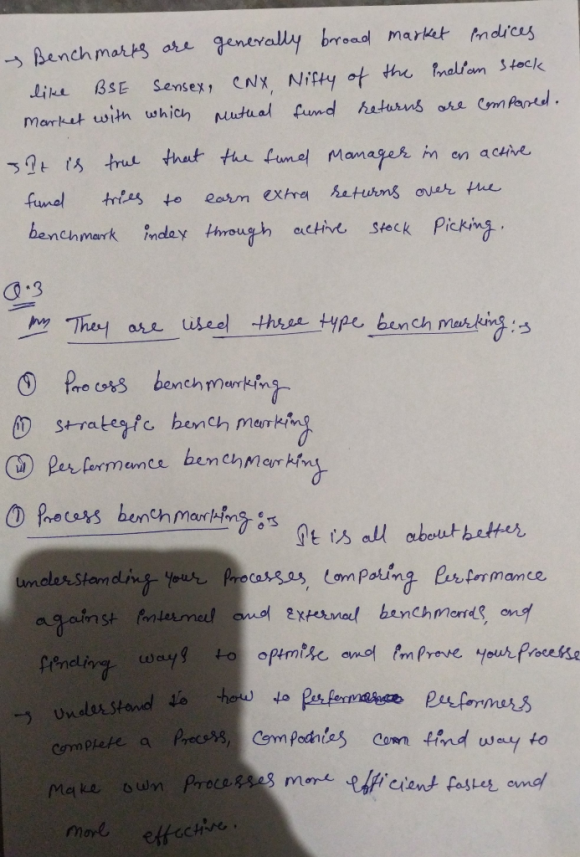 → Benchmarks are generally broad market indices
like BSE Sensex, CNX, Nifty of the Indian Stock
market with which Mutual fund returns are Compared.
→ It is true that the fund Manager in an active
fund tries to earn extra returns over the
benchmark index through active stock Picking.
Q.3
Ans They are used three type benchmarking:→
(i) Process benchmarking
(ii) Strategic benchmarking
(iii) Performance benchmarking
(i) Process benchmarking:→ It is all about better
understanding your Processes, Comparing Performance
against internal and external benchmards, and
finding ways to optmise and improve your Processe
→ Understand to how to Performers
complete a Process, Compachies can find way to
Make own Processes more efficient faster and
more effective.